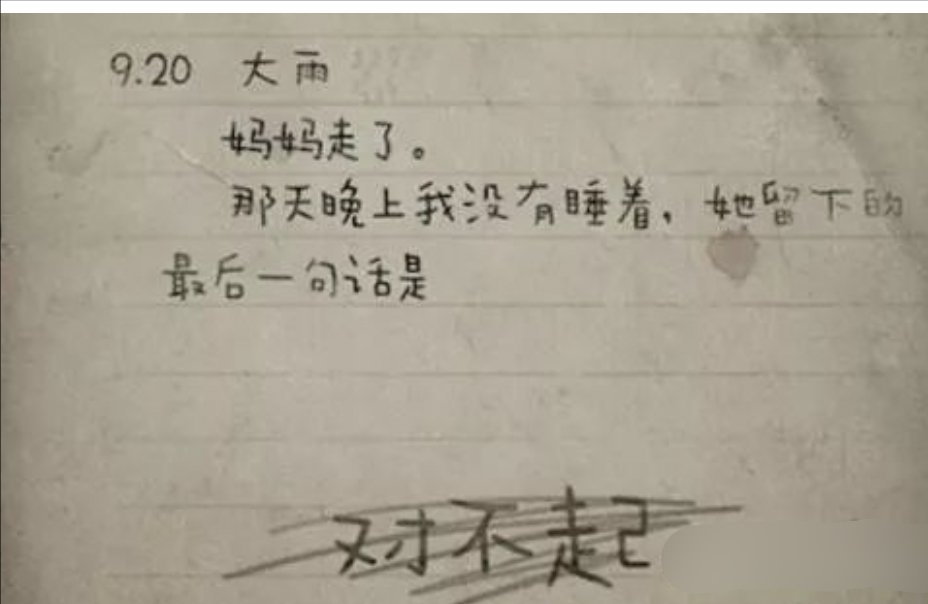 9.20 大雨
妈妈走了。
那天晚上我没有睡着，她留下的
最后一句话是
对不起